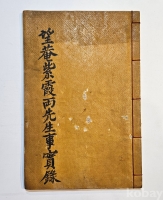 望菴紫霞兩先生事實錄